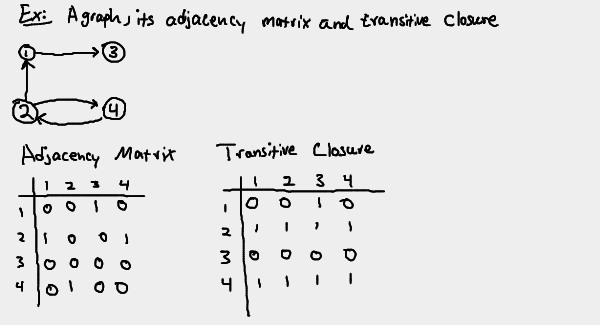 Ex: A graph, its adjacency matrix and transitive closure
1 3
2 4
Adjacency Matrix
1 2 3 4
1 0 0 1 0
2 1 0 0 1
3 0 0 0 0
4 0 1 0 0
Transitive Closure
1 2 3 4
1 0 0 1 0
2 1 1 1 1
3 0 0 0 0
4 1 1 1 1